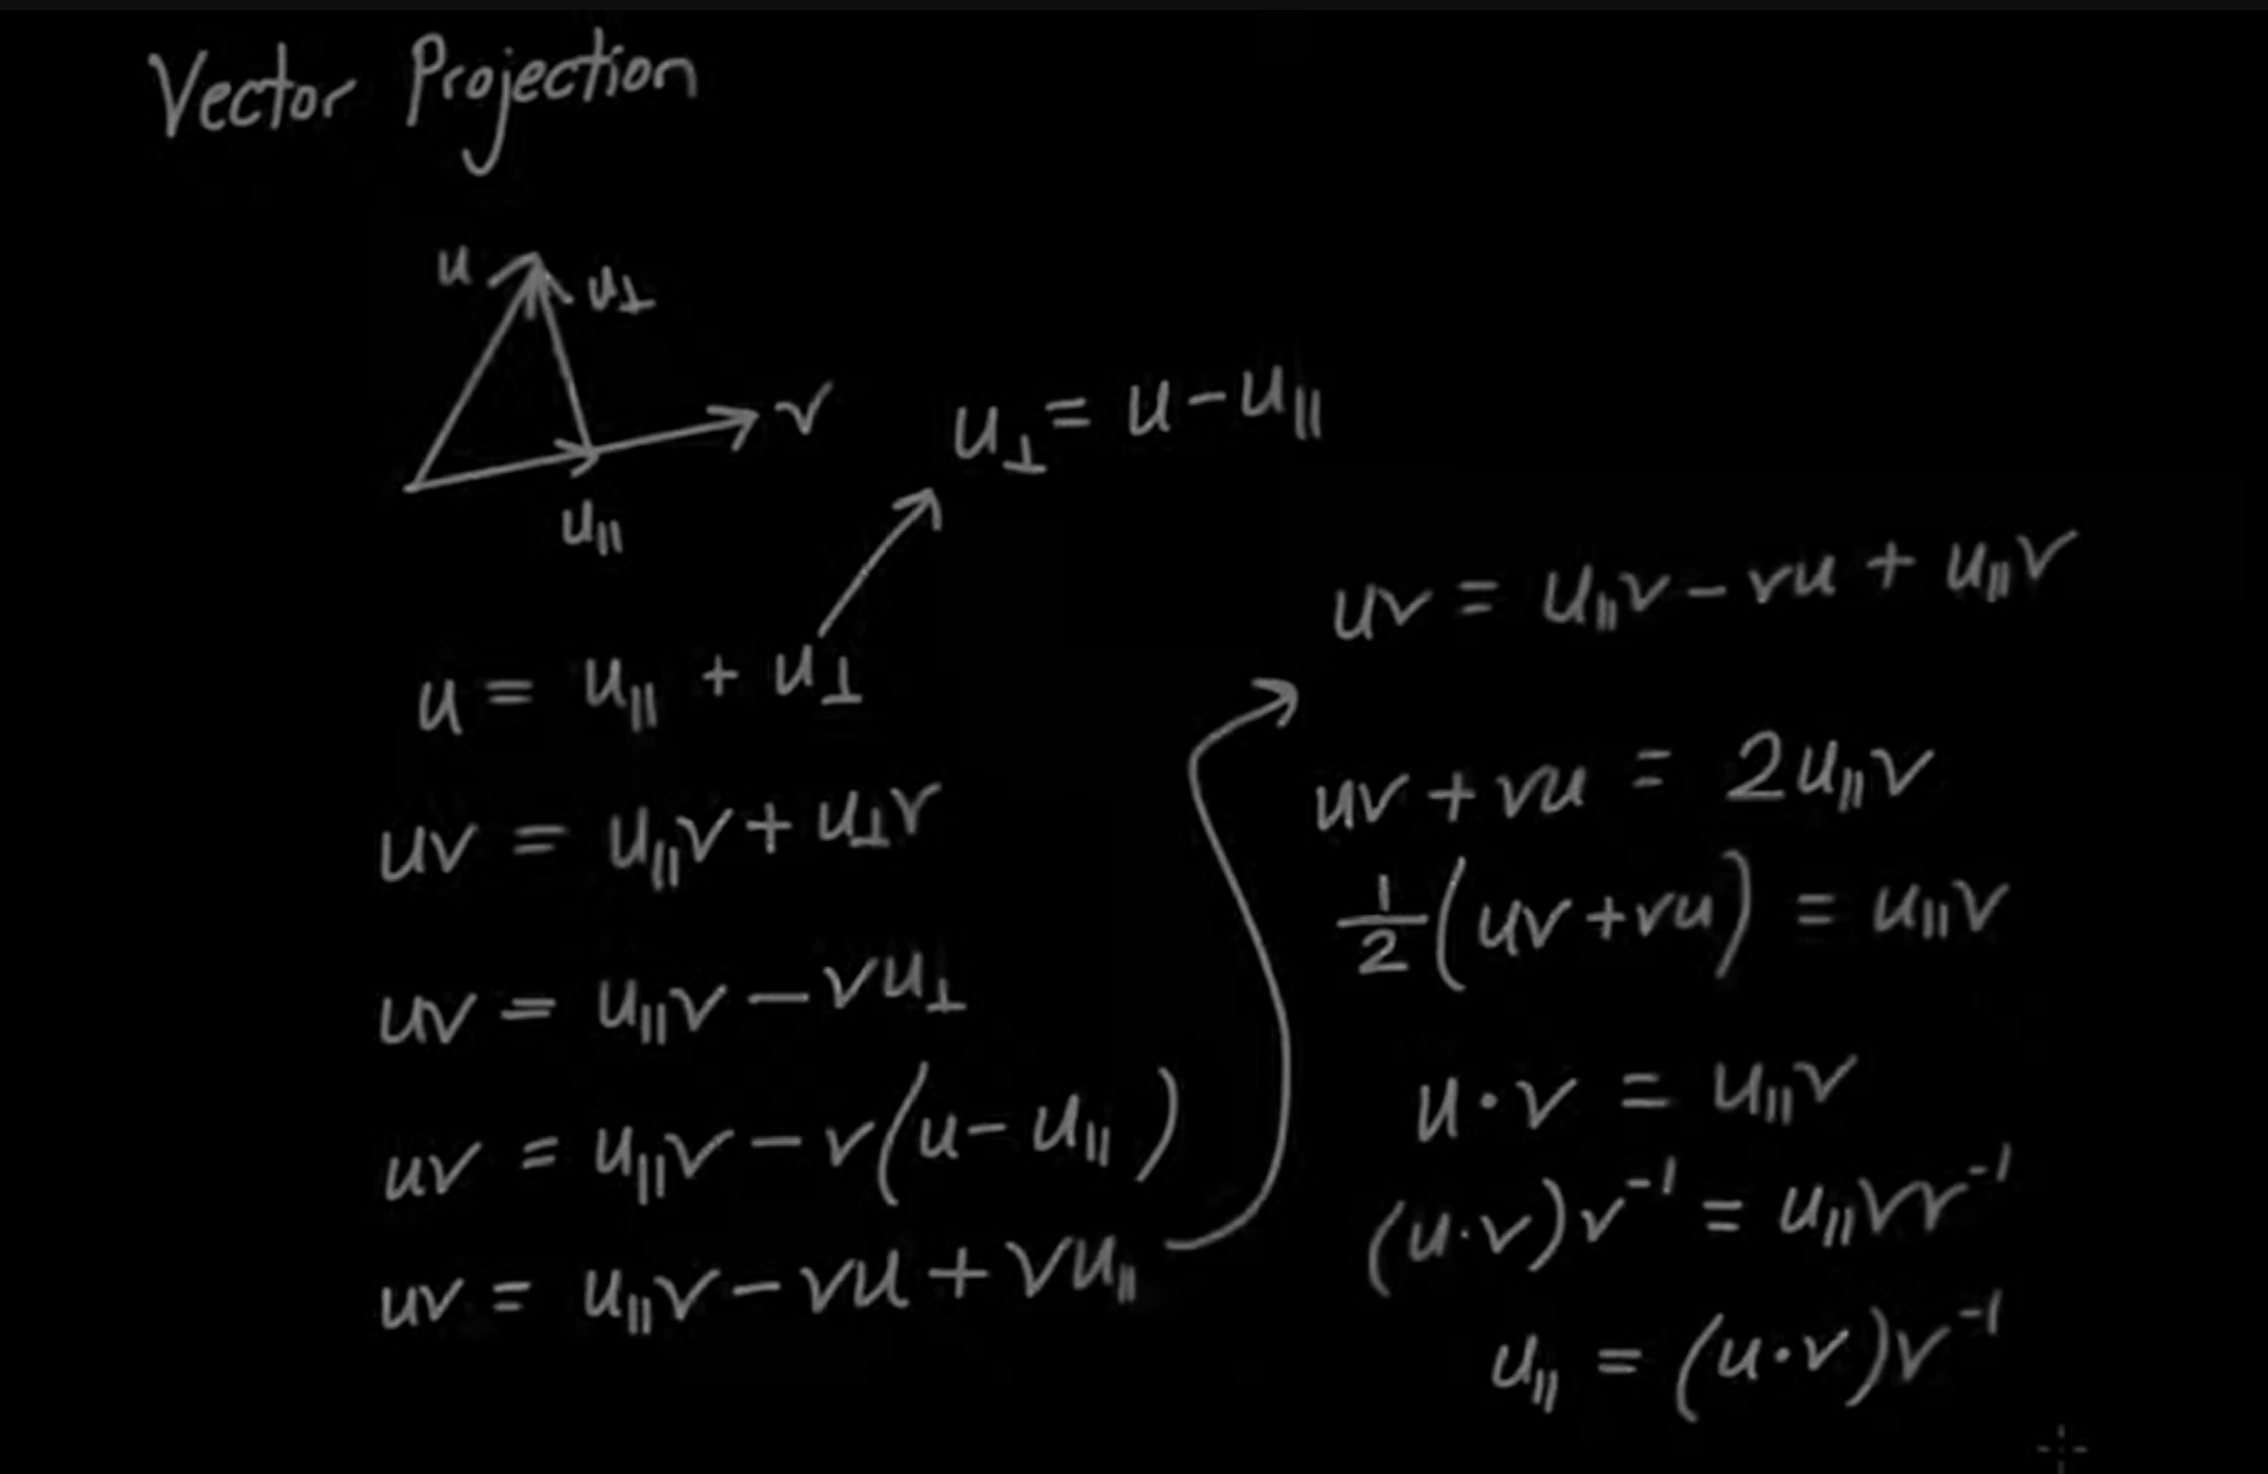 Vector Projection
u
u⊥
v
u∥
u⊥ = u - u∥
u = u∥ + u⊥
uv = u∥v + u⊥v
uv = u∥v - vu⊥
uv = u∥v - v(u - u∥)
uv = u∥v - vu + vu∥
uv = u∥v - vu + u∥v
uv + vu = 2u∥v
1/2(uv + vu) = u∥v
u·v = u∥v
(u·v)v⁻¹ = u∥vv⁻¹
u∥ = (u·v)v⁻¹